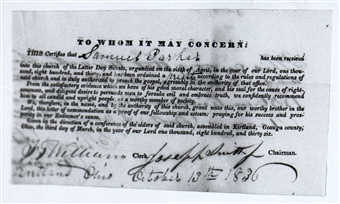 TO WHOM IT MAY CONCERN:
THIS Certifies that Samuel Parker has been received
into this church of the Latter Day Saints, organized on the sixth of April, in the year of our Lord, one thou-
sand, eight hundred, and thirty; and has been ordained a Priest according to the rules and regulations of
said church, and is duly authorized to preach the gospel, agreeably to the authority of that office.
From the satisfactory evidence which we have of his good moral character, and his zeal for the cause of right-
eousness, and diligent desire to persuade men to forsake evil and embrace truth, we confidently recommend
him to all candid and upright people, as a worthy member of society.
We, therefore, in the name, and by the authority of this church, grant unto this, our worthy brother in the
Lord, this letter of commendation as a proof of our fellowship and esteem: praying for his success and pros-
perity in our Redeemer's cause.
Given by the direction of a conference of the elders of said church, assembled in Kirtland, Geauga county,
Ohio, the third day of March, in the year of our Lord one thousand, eight hundred, and thirty six.
F G Williams Clerk. Joseph Smith Jr Chairman.
Kirtland Ohio October 13th 1836